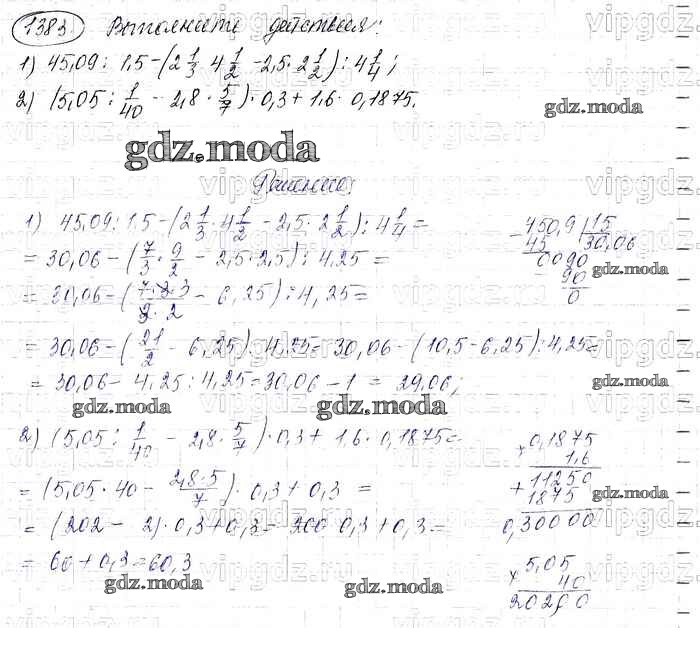 1383. Выполните действия:
1) 45,09 : 1,5 - (2 1/3 · 4 1/2 - 2,5 · 2 1/2) : 4 1/4;
2) (5,05 : 1/40 - 2,8 · 5/7) · 0,3 + 1,6 · 0,1875.
gdz.moda
gdz.moda
Решение:
1) 45,09 : 1,5 - (2 1/3 · 4 1/2 - 2,5 · 2 1/2) : 4 1/4 =
= 30,06 - (7/3 · 9/2 - 2,5 · 2,5) : 4,25 =
= 30,06 - (7·3·3/3·2 - 6,25) : 4,25 =
= 30,06 - (21/2 - 6,25) : 4,25 = 30,06 - (10,5 - 6,25) : 4,25 =
= 30,06 - 4,25 : 4,25 = 30,06 - 1 = 29,06;
450,9 | 15
45 30,06
0090
90
0
gdz.moda
gdz.moda
gdz.moda
gdz.moda
2) (5,05 : 1/40 - 2,8 · 5/7) · 0,3 + 1,6 · 0,1875 =
= (5,05 · 40 - 2,8·5/7) · 0,3 + 0,3 =
= (202 - 2) · 0,3 + 0,3 = 200 · 0,3 + 0,3 =
= 60 + 0,3 = 60,3
× 0,1875
1,6
+ 11250
1875
0,30000
gdz.moda
× 5,05
40
20200
gdz.moda
gdz.moda
gdz.moda